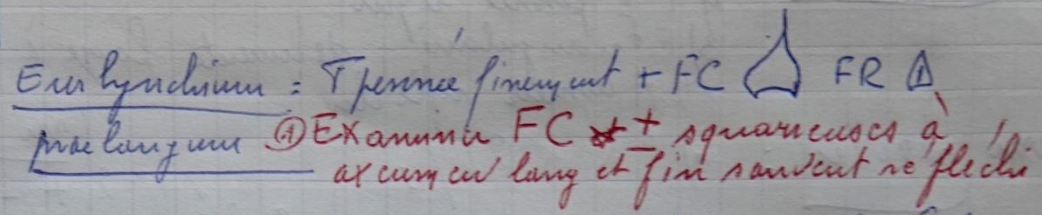 Eurhynchium : T pennée finement + FC FR
praelongum ① Examiner FC ± squarreuses à
acumen long et fin souvent réfléchi